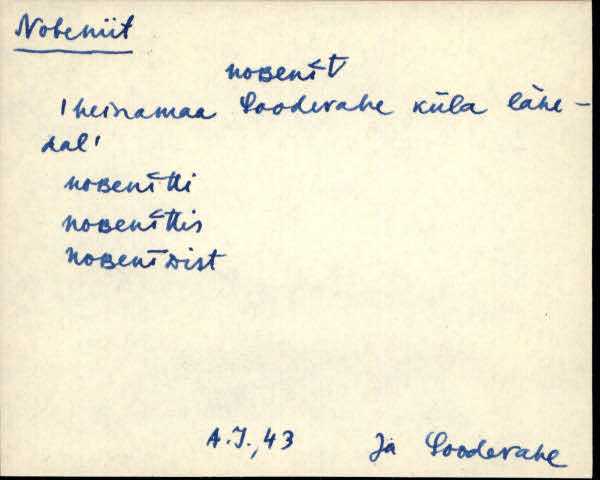 Nobeniit
noʙenīt̆
'heinamaa Sooderahe küla lähe-
dal'
noʙenītti
noʙenīttis
noʙenīᴅist
A.J., 43 Jä Sooderahe